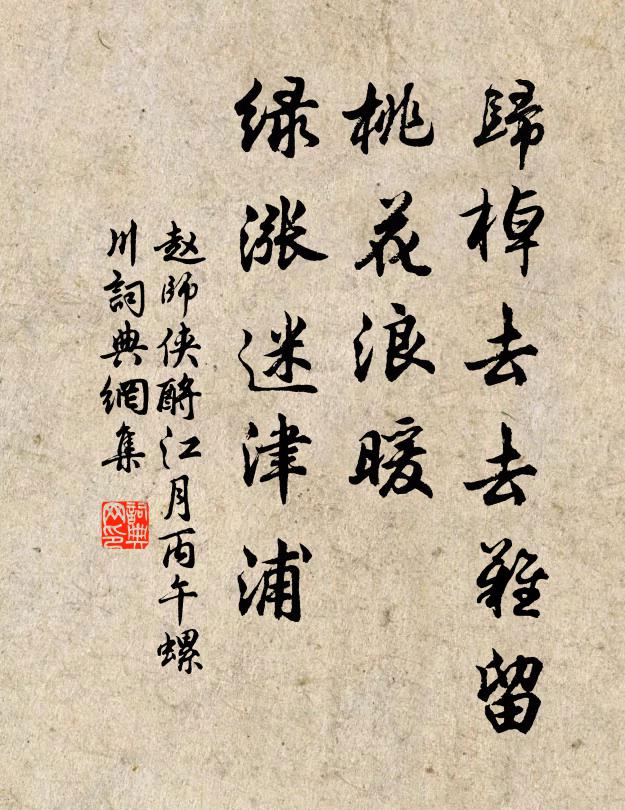 歸棹去去難留
桃花浪暖
绿漲迷津浦
赵師侠酹江月丙午螺
川詞典網集
詞典网印